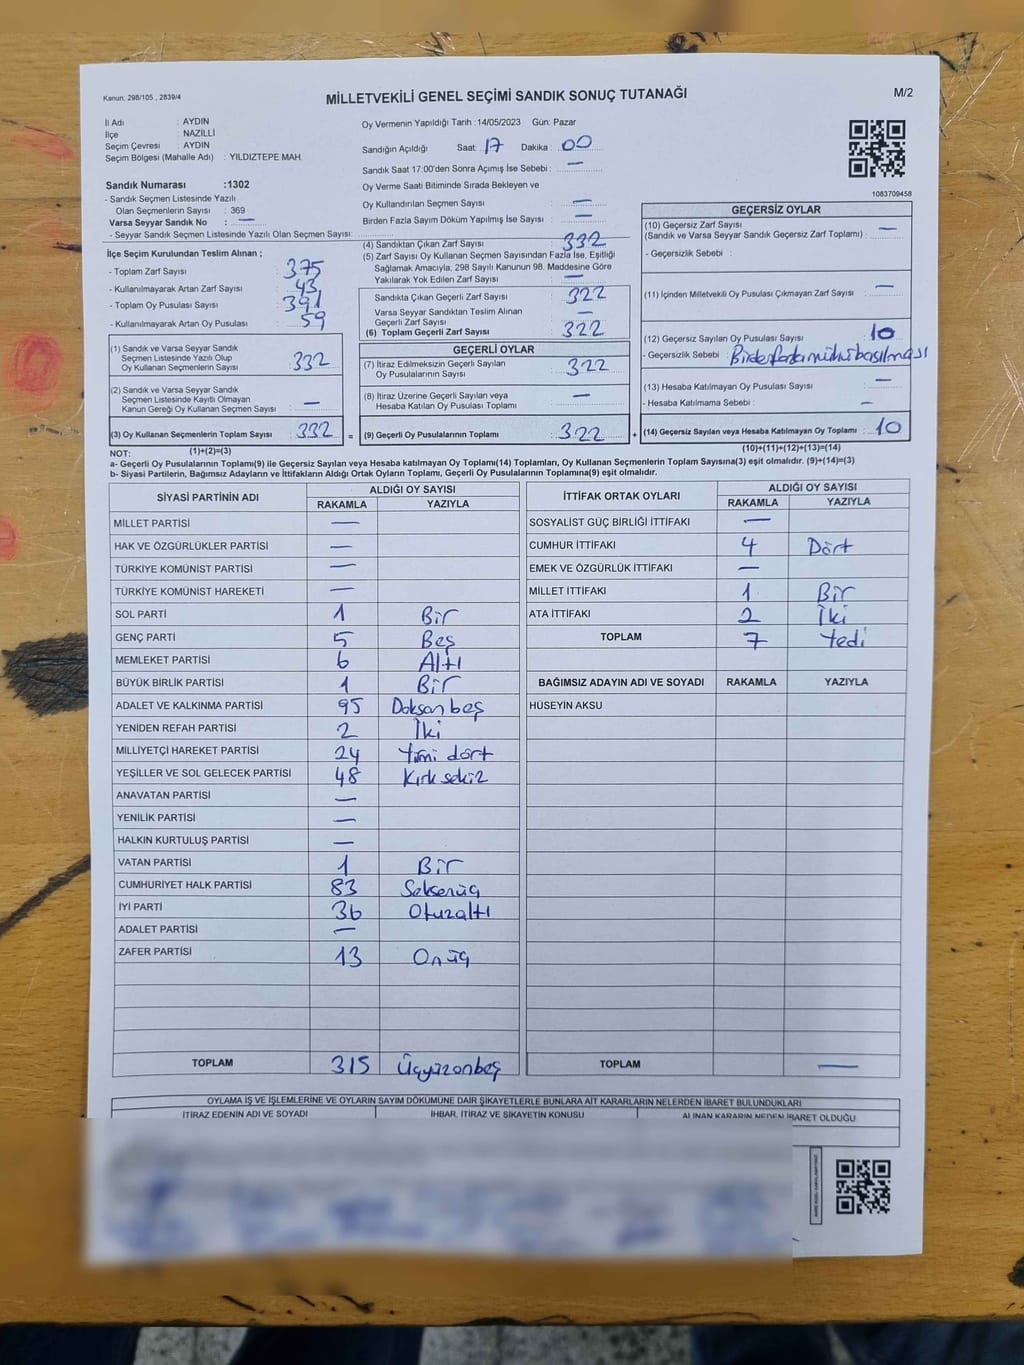 Kanun: 298/105 , 2839/4
MİLLETVEKİLİ GENEL SEÇİMİ SANDIK SONUÇ TUTANAĞI
M/2
İl Adı : AYDIN
İlçe : NAZİLLİ
Seçim Çevresi : AYDIN
Seçim Bölgesi (Mahalle Adı) : YILDIZTEPE MAH.
Oy Vermenin Yapıldığı Tarih : 14/05/2023 Gün: Pazar
Sandığın Açıldığı Saat : 17 Dakika : 00
Sandık Saat 17:00'den Sonra Açımış İse Sebebi : —
Oy Verme Saati Bitiminde Sırada Bekleyen ve
Oy Kullandırılan Seçmen Sayısı : —
Birden Fazla Sayım Döküm Yapılmış İse Sayısı : —
1083709458
Sandık Numarası :1302
- Sandık Seçmen Listesinde Yazılı
Olan Seçmenlerin Sayısı : 369
Varsa Seyyar Sandık No : —
- Seyyar Sandık Seçmen Listesinde Yazılı Olan Seçmen Sayısı:
İlçe Seçim Kurulundan Teslim Alınan ;
- Toplam Zarf Sayısı : 375
- Kullanılmayarak Artan Zarf Sayısı : 43
- Toplam Oy Pusulası Sayısı : 391
- Kullanılmayarak Artan Oy Pusulası : 59
(1) Sandık ve Varsa Seyyar Sandık
Seçmen Listesinde Yazılı Olup
Oy Kullanan Seçmenlerin Sayısı : 332
(2) Sandık ve Varsa Seyyar Sandık
Seçmen Listesinde Kayıtlı Olmayan
Kanun Gereği Oy Kullanan Seçmen Sayısı : —
(3) Oy Kullanan Seçmenlerin Toplam Sayısı : 332 =
(4) Sandıktan Çıkan Zarf Sayısı : 332
(5) Zarf Sayısı Oy Kullanan Seçmen Sayısından Fazla İse, Eşitliği
Sağlamak Amacıyla, 298 Sayılı Kanunun 98. Maddesine Göre
Yakılarak Yok Edilen Zarf Sayısı : —
Sandıkta Çıkan Geçerli Zarf Sayısı : 322
Varsa Seyyar Sandıktan Teslim Alınan
Geçerli Zarf Sayısı : —
(6) Toplam Geçerli Zarf Sayısı : 322
GEÇERLİ OYLAR
(7) İtiraz Edilmeksizin Geçerli Sayılan
Oy Pusulalarının Sayısı : 322
(8) İtiraz Üzerine Geçerli Sayılan veya
Hesaba Katılan Oy Pusulası Toplamı : —
(9) Geçerli Oy Pusulalarının Toplamı : 322 +
GEÇERSİZ OYLAR
(10) Geçersiz Zarf Sayısı
(Sandık ve Varsa Seyyar Sandık Geçersiz Zarf Toplamı) : —
- Geçersizlik Sebebi :
(11) İçinden Milletvekili Oy Pusulası Çıkmayan Zarf Sayısı : —
(12) Geçersiz Sayılan Oy Pusulası Sayısı : 10
- Geçersizlik Sebebi : Birden fazla mühür basılması
(13) Hesaba Katılmayan Oy Pusulası Sayısı : —
- Hesaba Katılmama Sebebi : —
(14) Geçersiz Sayılan veya Hesaba Katılmayan Oy Toplamı : 10
NOT: (1)+(2)=(3)
(10)+(11)+(12)+(13)=(14)
a- Geçerli Oy Pusulalarının Toplamı(9) ile Geçersiz Sayılan veya Hesaba katılmayan Oy Toplamı(14) Toplamları, Oy Kullanan Seçmenlerin Toplam Sayısına(3) eşit olmalıdır. (9)+(14)=(3)
b- Siyasi Partilerin, Bağımsız Adayların ve İttifakların Aldığı Ortak Oyların Toplamı, Geçerli Oy Pusulalarının Toplamına(9) eşit olmalıdır.
SİYASİ PARTİNİN ADI ALDIĞI OY SAYISI
RAKAMLA YAZIYLA
MİLLET PARTİSİ —
HAK VE ÖZGÜRLÜKLER PARTİSİ —
TÜRKİYE KOMÜNİST PARTİSİ —
TÜRKİYE KOMÜNİST HAREKETİ —
SOL PARTİ 1 Bir
GENÇ PARTİ 5 Beş
MEMLEKET PARTİSİ 6 Altı
BÜYÜK BİRLİK PARTİSİ 1 Bir
ADALET VE KALKINMA PARTİSİ 95 Doksan beş
YENİDEN REFAH PARTİSİ 2 İki
MİLLİYETÇİ HAREKET PARTİSİ 24 Yirmi dört
YEŞİLLER VE SOL GELECEK PARTİSİ 48 Kırk sekiz
ANAVATAN PARTİSİ —
YENİLİK PARTİSİ —
HALKIN KURTULUŞ PARTİSİ —
VATAN PARTİSİ 1 Bir
CUMHURİYET HALK PARTİSİ 83 Seksenüç
İYİ PARTİ 36 Otuzaltı
ADALET PARTİSİ —
ZAFER PARTİSİ 13 Onüç
TOPLAM 315 Üçyüzonbeş
İTTİFAK ORTAK OYLARI ALDIĞI OY SAYISI
RAKAMLA YAZIYLA
SOSYALİST GÜÇ BİRLİĞİ İTTİFAKI —
CUMHUR İTTİFAKI 4 Dört
EMEK VE ÖZGÜRLÜK İTTİFAKI —
MİLLET İTTİFAKI 1 Bir
ATA İTTİFAKI 2 İki
TOPLAM 7 Yedi
BAĞIMSIZ ADAYIN ADI VE SOYADI RAKAMLA YAZIYLA
HÜSEYİN AKSU
TOPLAM —
OYLAMA İŞ VE İŞLEMLERİNE VE OYLARIN SAYIM DÖKÜMÜNE DAİR ŞİKAYETLERLE BUNLARA AİT KARARLARIN NELERDEN İBARET BULUNDUKLARI
İTİRAZ EDENİN ADI VE SOYADI İHBAR, İTİRAZ VE ŞİKAYETİN KONUSU ALINAN KARARIN NEDEN İBARET OLDUĞU